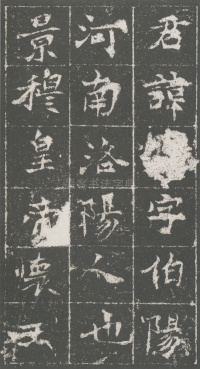 君諱字伯陽
河南洛陽人也
景穆皇帝懷